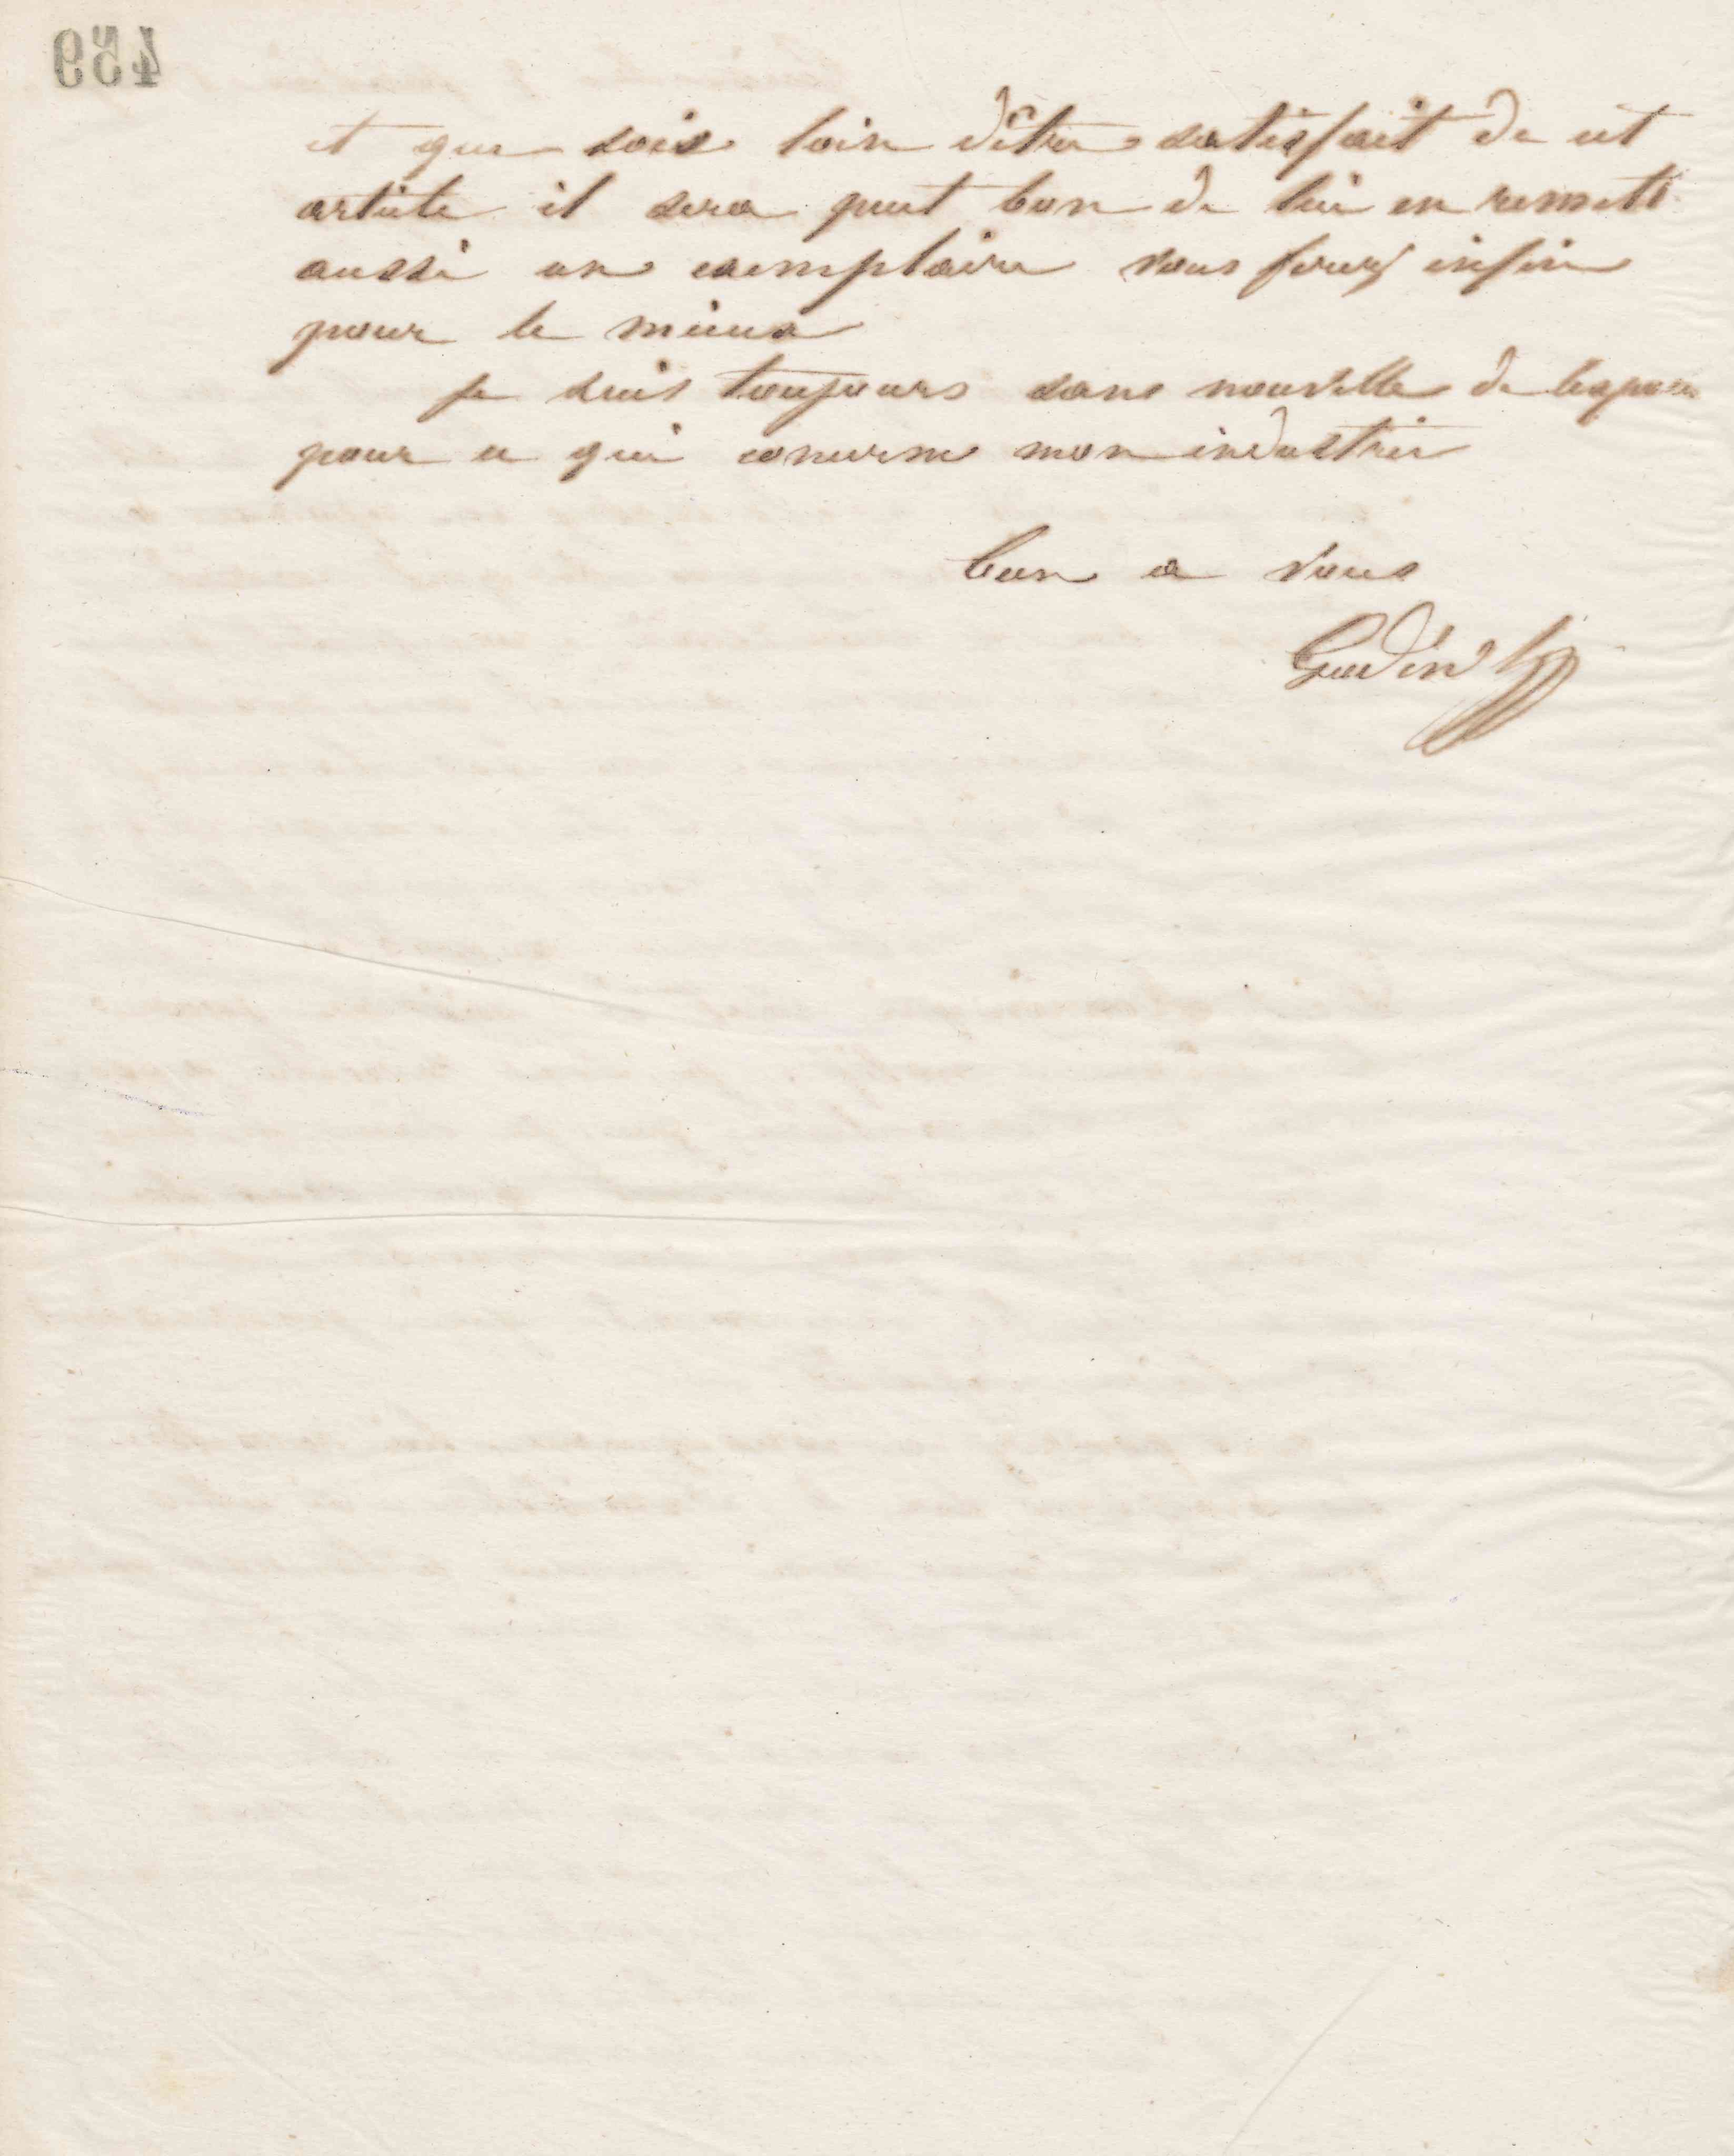 459
et que sois loin d'être satisfait de cet
article il sera peut bon de lui en remett
aussi un exemplaire vous ferez enfin
pour le mieux
je suis toujours sans nouvelle de
pour ce qui concerne mon industrie
bon a vous
Godin